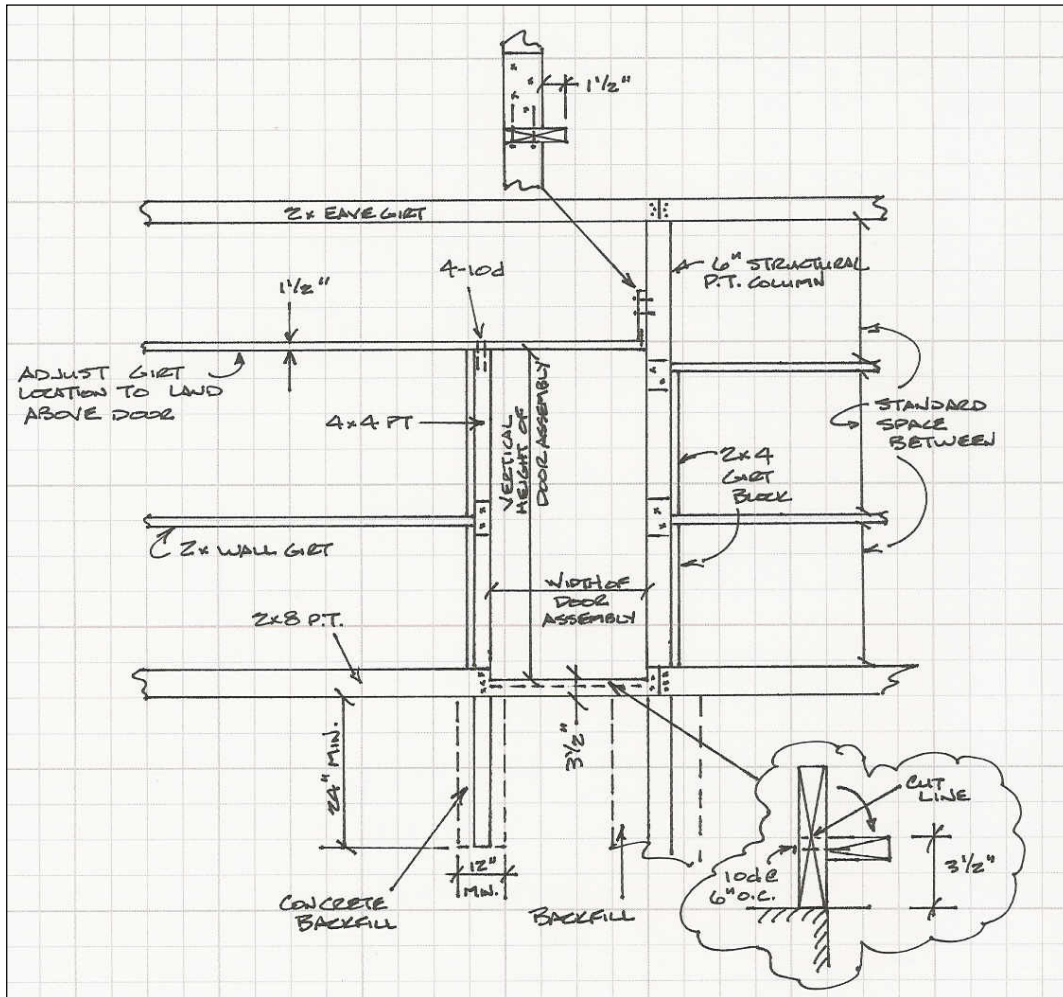 1½"
2x EAVE GIRT
4-10d
6" STRUCTURAL
P.T. COLUMN
1½"
ADJUST GIRT
LOCATION TO LAND
ABOVE DOOR
4x4 PT
VERTICAL
HEIGHT OF
DOOR ASSEMBLY
STANDARD
SPACE
BETWEEN
2x4
GIRT
BLOCK
2x WALL GIRT
WIDTH OF
DOOR
ASSEMBLY
2x8 P.T.
24" MIN.
3½"
CUT
LINE
10d@
6" O.C.
3½"
12"
MIN.
CONCRETE
BACKFILL
BACKFILL